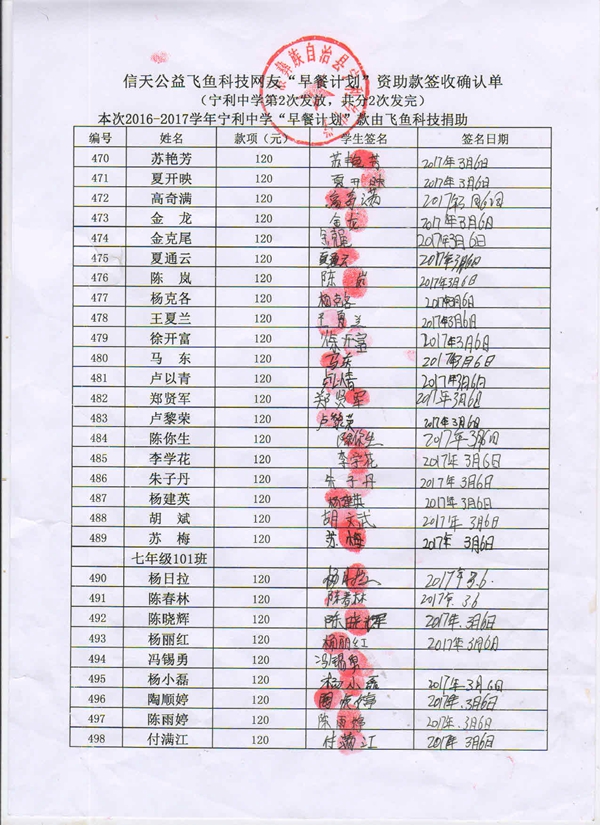 彝族自治县宁
信天公益飞鱼科技网友“早餐计划”资助款签收确认单
（宁利中学第2次发放，共分2次发完）
本次2016-2017学年宁利中学“早餐计划”款由飞鱼科技捐助
编号 姓名 款项（元） 学生签名 签名日期
470 苏艳芳 120 苏艳芳 2017年3月6日
471 夏开映 120 夏开映 2017年3月6日
472 高奇满 120 高奇满 2017年3月6日
473 金 龙 120 金龙 2017年3月6日
474 金克尾 120 2017年3月6日
475 夏通云 120 夏通云 2017年3月6日
476 陈 岚 120 陈岚 2017年3月6日
477 杨克各 120 杨克各 2017年3月6日
478 王夏兰 120 王夏兰 2017年3月6日
479 徐开富 120 徐开富 2017年3月6日
480 马 东 120 马东 2017年3月6日
481 卢以青 120 卢以情 2017年3月6日
482 郑贤军 120 郑贤军 2017年3月6日
483 卢黎荣 120 卢黎荣 2017年3月6日
484 陈你生 120 陈你生 2017年3月6日
485 李学花 120 李学花 2017年3月6日
486 朱子丹 120 朱子丹 2017年3月6日
487 杨建英 120 杨建英 2017年3月6日
488 胡 斌 120 胡文武 2017年3月6日
489 苏 梅 120 苏梅 2017年3月6日
七年级101班
490 杨日拉 120 杨日拉 2017年3.6.
491 陈春林 120 陈春林 2017年.3.6
492 陈晓辉 120 陈晓辉 2017年.3月6日
493 杨丽红 120 杨丽红 2017年.3月6日
494 冯锡勇 120 冯锡勇
495 杨小磊 120 杨小磊 2017年.3月6日
496 陶顺婷 120 2017年.3月6日
497 陈雨婷 120 陈雨婷 2017年.3月6日
498 付满江 120 付满江 2017年.3月6日